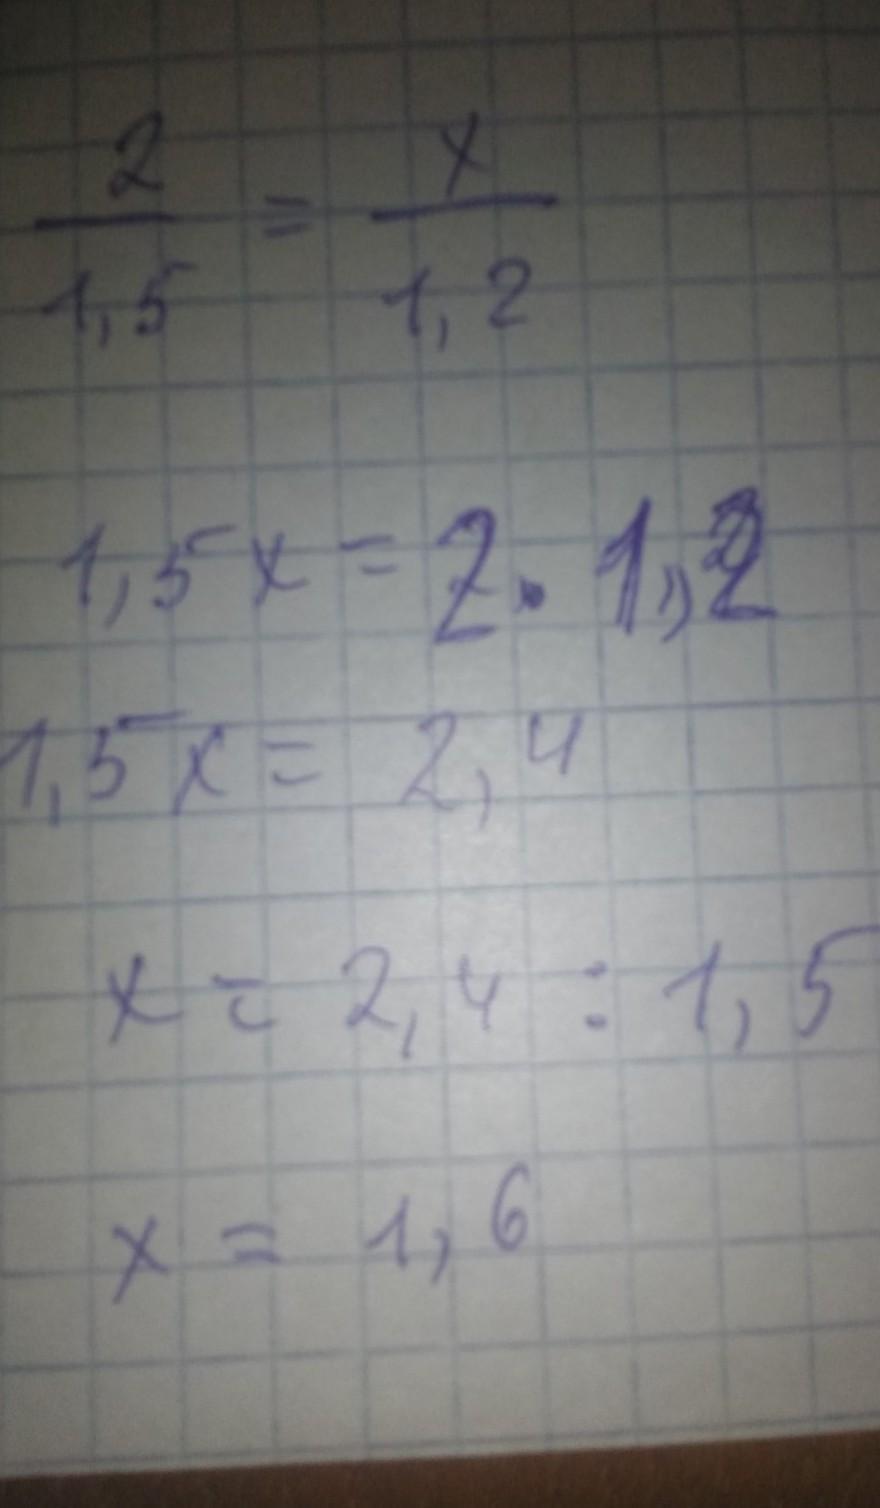 2/1,5 = x/1,2
1,5x = 2 · 1,2
1,5x = 2,4
x = 2,4 : 1,5
x = 1,6